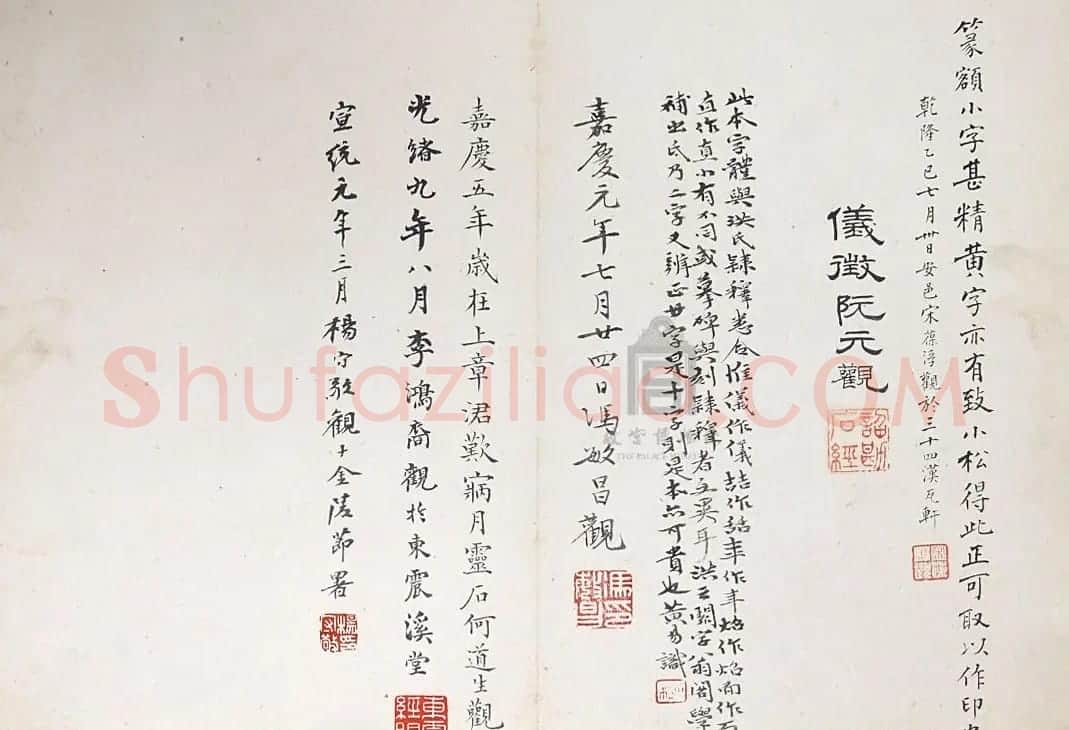 篆額小字甚精黃字亦有致小松得此正可取以作印
乾隆乙巳七月卅日安邑宋葆淳觀於三十四漢瓦軒
儀徵阮元觀
詔勘石經
此本字體與洪氏隸釋悉合惟儀作儀喆作詰年作年焰作焰而作
直作直小有不同或摹碑與刻隸釋者之異耳洪云闕字翁閣學
補出氏乃二字又辨正廿字是十字則是本亦可貴也黃易識
嘉慶元年七月廿四日馮敏昌觀
嘉慶五年歲在上章涒歎寎月靈石何道生觀
光緒九年八月李鴻裔觀於東震溪堂
宣統元年三月楊守敬觀于金陵節署
Shufaziliage.COM